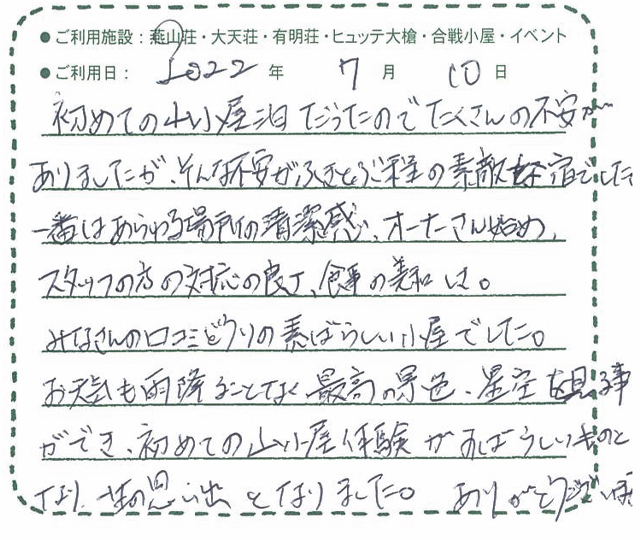 ●ご利用施設：燕山荘・大天荘・有明荘・ヒュッテ大槍・合戦小屋・イベント
●ご利用日： 2022 年 7 月 10 日
初めての山小屋泊だったのでたくさんの不安が
ありましたが、そんな不安がふきとぶ程の素敵な宿でした
一番はあらゆる場所の清潔感、オーナーさん始め、
スタッフの方の対応の良さ、食事の美味しさ。
みなさんの口コミどうりの素ばらしい小屋でした。
お天気も雨降ることなく最高の景色、星空を見る事
ができ、初めての山小屋体験がすばらしいものと
なり、一生の思い出となりました。 ありがとうござい